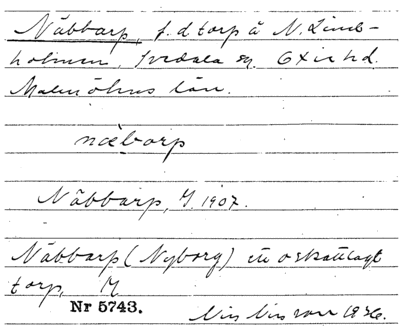 Näbbarp, f.d torp å N. Lind-
holmen, Svedala sn. Oxie hd.
Malmöhus län.
näbarp
Näbbarp, J. 1907.
Näbbarp (Nyborg) ett oskattlagt
torp,
Nr 5743.
Nils Nilsson 1936.